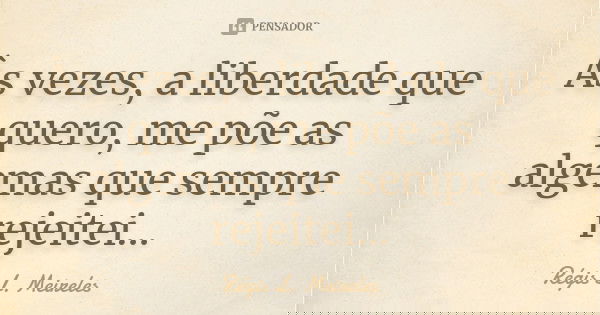 PENSADOR
Às vezes, a liberdade que
quero, me põe as
algemas que sempre
rejeitei...
Régis L. Meireles